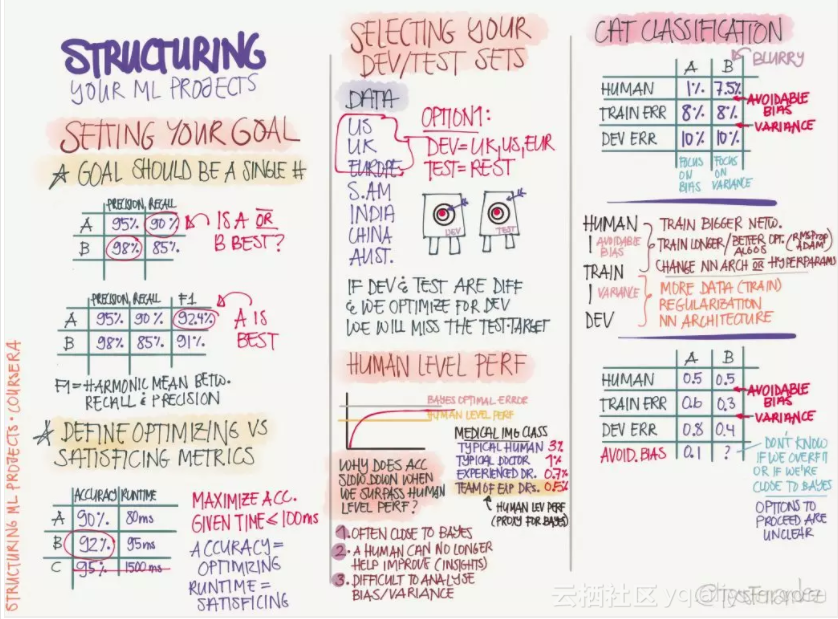 STRUCTURING
YOUR ML PROJECTS
SETTING YOUR GOAL
GOAL SHOULD BE A SINGLE #
PRECISION, RECALL
A 95% 90%
B 98% 85%
IS A OR
B BEST?
PRECISION, RECALL F1
A 95% 90% 92.4%
B 98% 85% 91%
A IS
BEST
F1 = HARMONIC MEAN BETW.
RECALL & PRECISION
DEFINE OPTIMIZING VS
SATISFICING METRICS
ACCURACY RUNTIME
A 90% 80ms
B 92% 95ms
C 95% 1500 ms
MAXIMIZE ACC.
GIVEN TIME ≤ 100ms
ACCURACY =
OPTIMIZING
RUNTIME =
SATISFICING
STRUCTURING ML PROJECTS · COURSERA
SELECTING YOUR
DEV/TEST SETS
DATA
US
UK
EUROPE
S.AM
INDIA
CHINA
AUST.
OPTION1:
DEV = UK, US, EUR
TEST = REST
DEV
TEST
IF DEV & TEST ARE DIFF
& WE OPTIMIZE FOR DEV
WE WILL MISS THE TEST-TARGET
HUMAN LEVEL PERF
BAYES OPTIMAL ERROR
HUMAN LEVEL PERF
MEDICAL IMG CLASS
TYPICAL HUMAN 3%
TYPICAL DOCTOR 1%
EXPERIENCED DR. 0.7%
TEAM OF EXP DRS. 0.5%
HUMAN LEV PERF
(PROXY FOR BAYES)
WHY DOES ACC
SLOW DOWN WHEN
WE SURPASS HUMAN
LEVEL PERF?
1. OFTEN CLOSE TO BAYES
2. A HUMAN CAN NO LONGER
HELP IMPROVE (INSIGHTS)
3. DIFFICULT TO ANALYSE
BIAS/VARIANCE
CAT CLASSIFICATION
BLURRY
A B
HUMAN 1% 7.5%
TRAIN ERR 8% 8%
DEV ERR 10% 10%
AVOIDABLE
BIAS
VARIANCE
FOCUS
ON
BIAS
FOCUS
ON
VARIANCE
HUMAN
AVOIDABLE
BIAS
TRAIN
VARIANCE
DEV
TRAIN BIGGER NETW.
TRAIN LONGER/BETTER OPT. ALGOS (RMSPROP ADAM)
CHANGE NN ARCH OR HYPERPARAMS
MORE DATA (TRAIN)
REGULARIZATION
NN ARCHITECTURE
A B
HUMAN 0.5 0.5
TRAIN ERR 0.6 0.3
DEV ERR 0.8 0.4
AVOID. BIAS 0.1 ?
AVOIDABLE
BIAS
VARIANCE
DON'T KNOW
IF WE OVERFIT
OR IF WE'RE
CLOSE TO BAYES
OPTIONS TO
PROCEED ARE
UNCLEAR
云栖社区